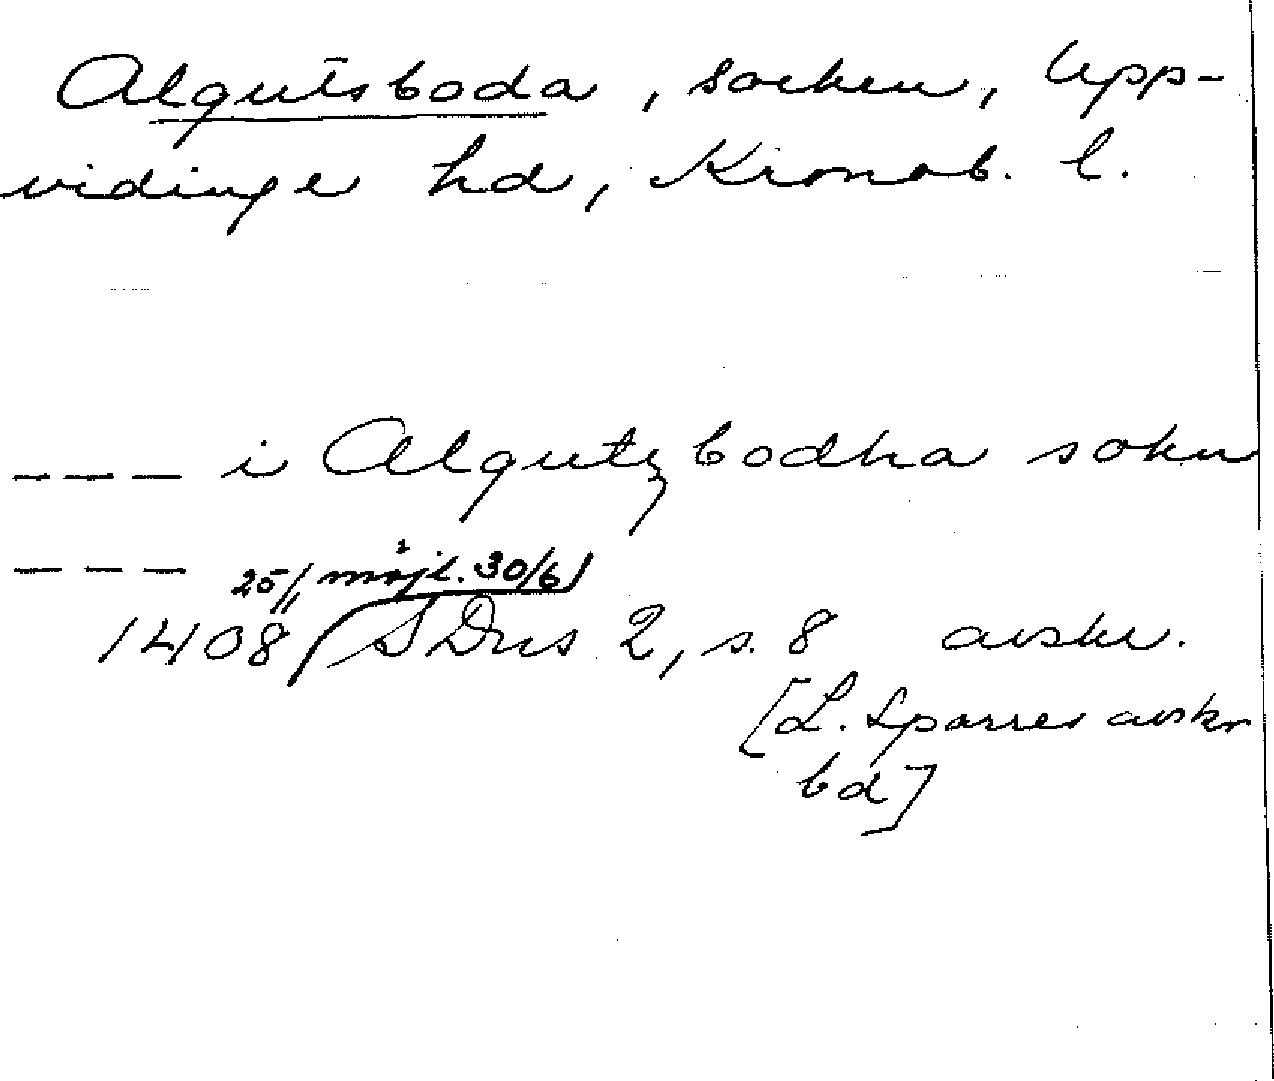 Algutsboda, socken, Upp-
vidinge hd, Kronob. l.
--- i Algutzbodha sokn
--- 25/11 möjl. 30/6)
1408 (SDns 2, s. 8 avskr.
[L. Sparres avskr
bd]